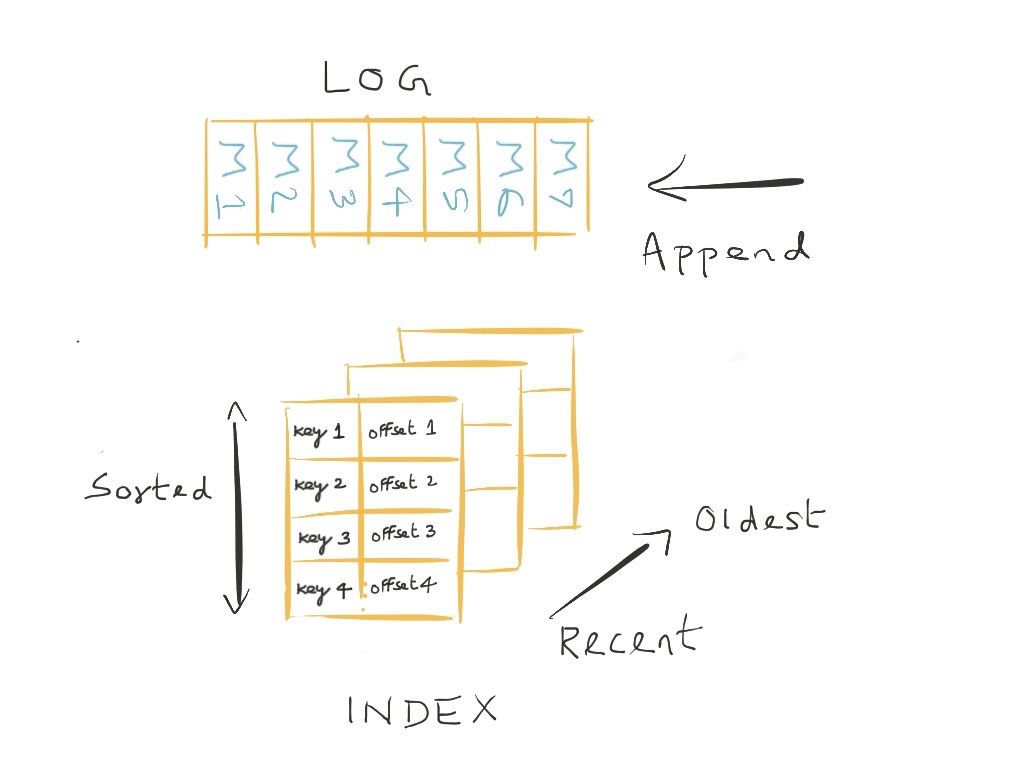 LOG
M1 M2 M3 M4 M5 M6 M7
Append
key 1 offset 1
key 2 offset 2
key 3 offset 3
key 4 offset 4
Sorted
Oldest
Recent
INDEX